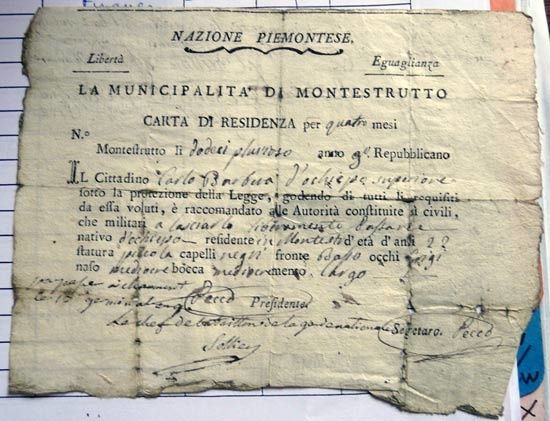 NAZIONE PIEMONTESE.
Libertà Eguaglianza
LA MUNICIPALITA' DI MONTESTRUTTO
CARTA DI RESIDENZA per quatro mesi
N.o
Montestrutto li dodeci piovoso anno 9.o Repubblicano
IL Cittadino Carlo Barbera d'ochiepo superiore
sotto la protezione della Legge, godendo di tutti li requisiti
da essa voluti, è raccomandato alle Autorità constituite sì civili,
che militari a lasciarlo
nativo d'ochiepo residente in Montest.o d'età d'anni 22
statura piccola capelli negri fronte basso occhi
naso mediocre bocca mediocre mento largo
Pecco Presidente
le 13 germinal
Le chef de bataillon de la garde nationale Segretaro. Pecco